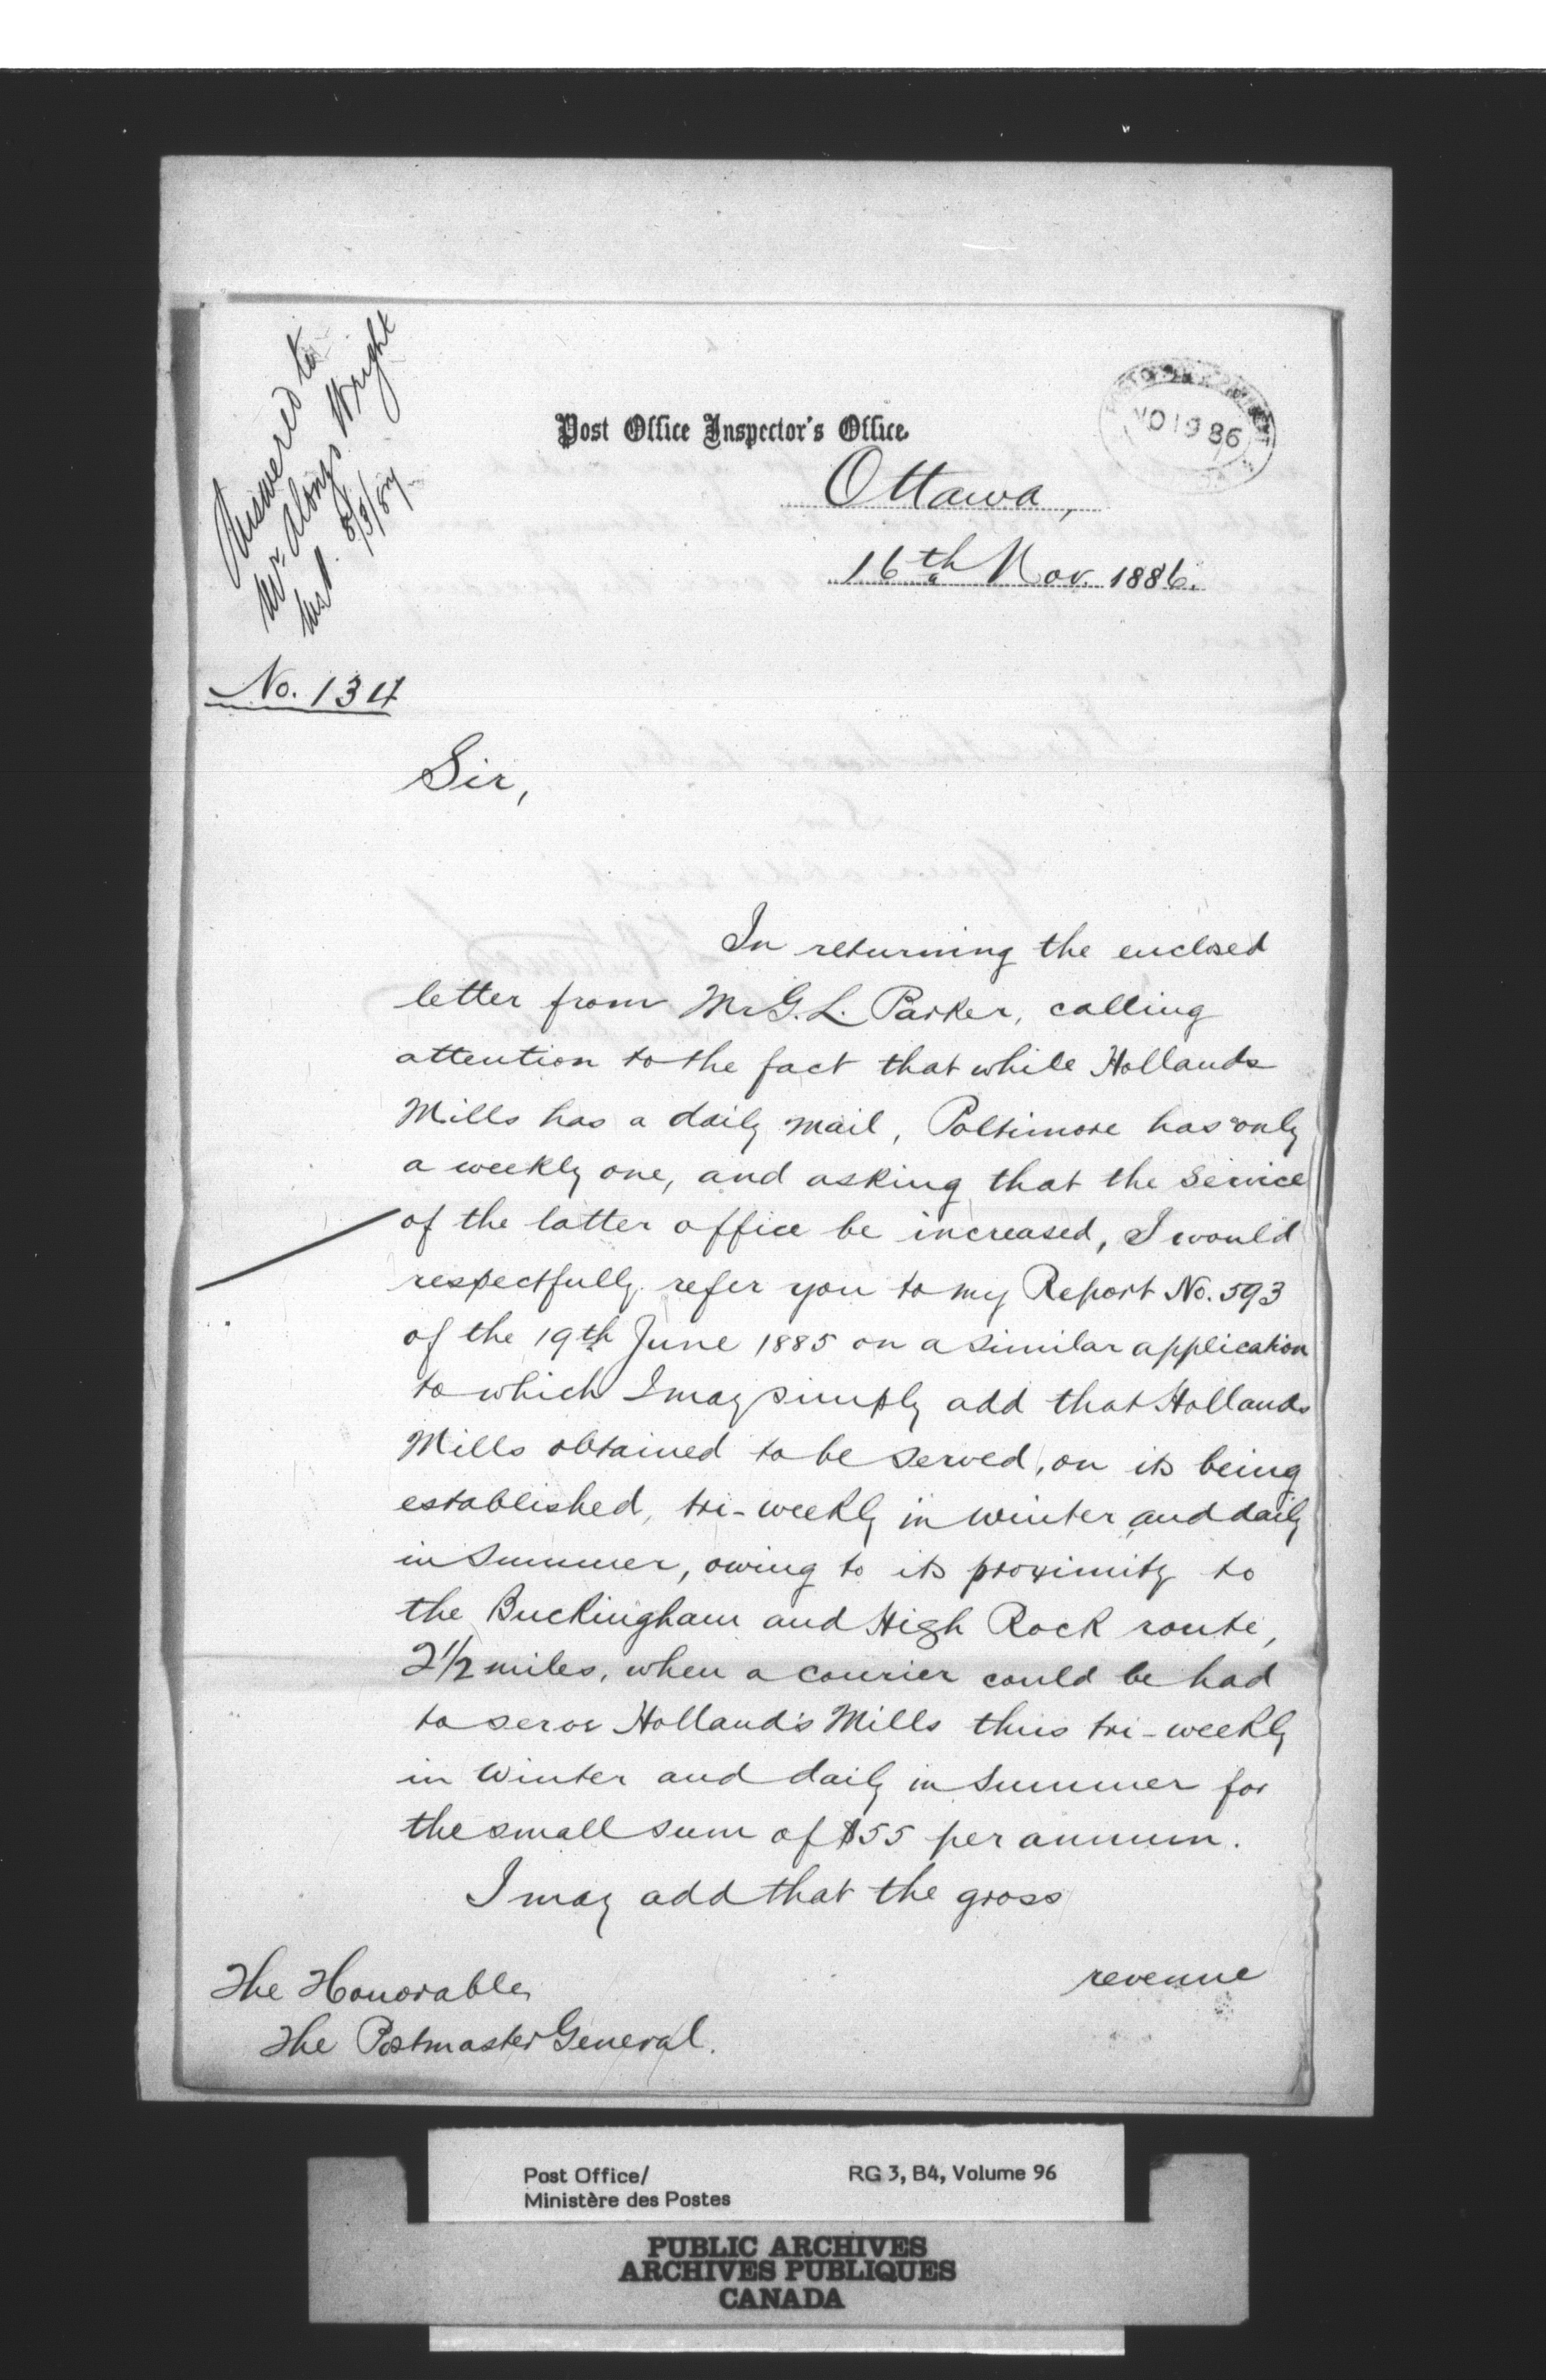 Answered to
Mr Alonzo Wright
8/3/87
Post Office Inspector's Office
NO 19 86
Ottawa,
16th Nov. 1886.
No. 134
Sir,
In returning the enclosed
letter from Mr G. L. Parker, calling
attention to the fact that while Hollands
Mills has a daily mail, Poltimore has only
a weekly one, and asking that the service
of the latter office be increased, I would
respectfully refer you to my Report No. 593
of the 19th June 1885 on a similar application
to which I may simply add that Hollands
Mills obtained to be served, on its being
established, tri-weekly in winter and daily
in Summer, owing to its proximity to
the Buckingham and High Rock route,
2 1/2 miles, when a courier could be had
to serve Holland's Mills thus tri-weekly
in Winter and daily in Summer for
the small sum of $55 per annum.
I may add that the gross
revenue
The Honorable
The Postmaster General.
Post Office/
Ministère des Postes
RG 3, B4, Volume 96
PUBLIC ARCHIVES
ARCHIVES PUBLIQUES
CANADA